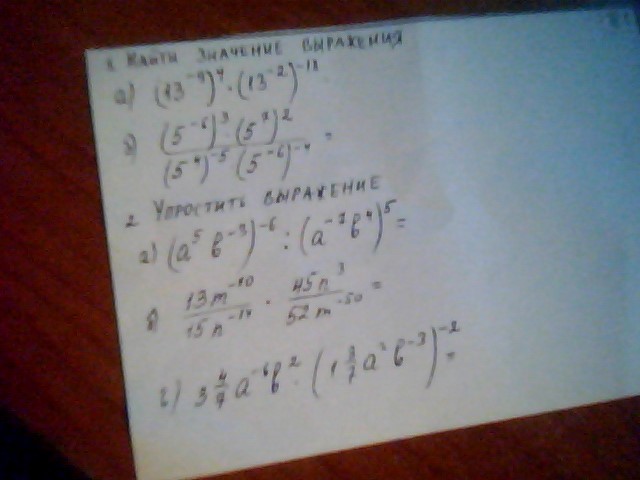 1 НАЙТИ ЗНАЧЕНИЕ ВЫРАЖЕНИЯ
а) (13⁻⁹)⁴·(13⁻²)⁻¹⁸
б) (5⁻⁶)³·(5⁷)² / (5⁴)⁻⁵ (5⁻⁶)⁻⁴ =
2 УПРОСТИТЬ ВЫРАЖЕНИЕ
а) (a⁵ b⁻³)⁻⁶ : (a⁻⁷ b⁴)⁵ =
в) 13m⁻¹⁰ / 15n⁻¹⁴ · 45n³ / 52m⁻⁵⁰ =
г) 3 4/7 a⁻⁶b² · (1 3/7 a b⁻³)⁻² =